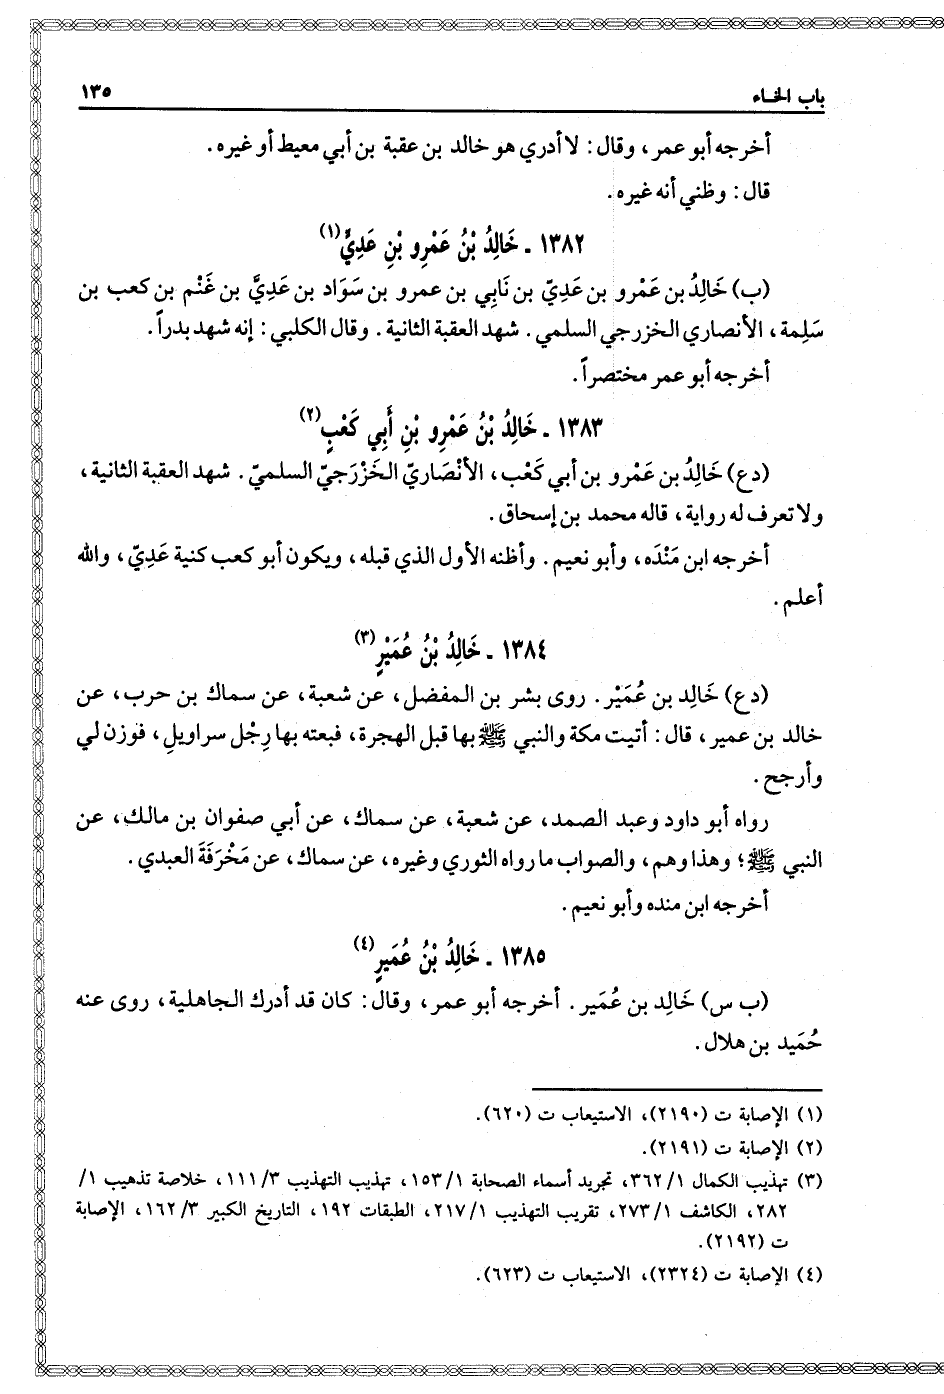 باب الخاء
١٣٥
أخرجه أبو عمر، وقال: لا أدري هو خالد بن عقبة بن أبي معيط أو غيره.
قال: وظني أنه غيره.
١٣٨٢ - خَالِدُ بْنُ عَمْرِو بْنِ عَدِيٍّ(١)
(ب) خَالِدُ بن عَمْرو بن عَدِيّ بن نَابِي بن عمرو بن سَوَاد بن عَدِيَّ بن غَنْم بن كعب بن
سَلِمة، الأنصاري الخزرجي السلمي. شهد العقبة الثانية. وقال الكلبي: إنه شهد بدراً.
أخرجه أبو عمر مختصراً.
١٣٨٣ - خَالِدُ بْنُ عَمْرِو بْنِ أَبِي كَعْبٍ(٢)
(دع) خَالِدُ بن عَمْرو بن أبي كَعْب، الأنْصَاريّ الخَزْرَجيّ السلميّ. شهد العقبة الثانية،
ولا تعرف له رواية، قاله محمد بن إسحاق.
أخرجه ابن مَنْدَه، وأبو نعيم. وأظنه الأول الذي قبله، ويكون أبو كعب كنية عَدِيّ، والله
أعلم.
١٣٨٤ - خَالِدُ بْنُ عُمَيْرٍ(٣)
(دع) خَالِد بن عُمَيْر. روى بشر بن المفضل، عن شعبة، عن سماك بن حرب، عن
خالد بن عمير، قال: أتيت مكة والنبي ﷺ بها قبل الهجرة، فبعته بها رِجْل سراويلِ، فوزن لي
وأرجح.
رواه أبو داود وعبد الصمد، عن شعبة، عن سماك، عن أبي صفوان بن مالك، عن
النبي ﷺ؛ وهذا وهم، والصواب ما رواه الثوري وغيره، عن سماك، عن مَخْرَفَةَ العبدي.
أخرجه ابن منده وأبو نعيم.
١٣٨٥ - خَالِدُ بْنُ عُمَيرٍ(٤)
(ب س) خَالِد بن عُمَير. أخرجه أبو عمر، وقال: كان قد أدرك الجاهلية، روى عنه
حُمَيد بن هلال.
(١) الإصابة ت (٢١٩٠)، الاستيعاب ت (٦٢٠).
(٢) الإصابة ت (٢١٩١).
(٣) تهذيب الكمال ٣٦٢/١، تجريد أسماء الصحابة ١٥٣/١، تهذيب التهذيب ١١١/٣، خلاصة تذهيب ١/
٢٨٢، الكاشف ٢٧٣/١، تقريب التهذيب ٢١٧/١، الطبقات ١٩٢، التاريخ الكبير ١٦٢/٣، الإصابة
ت (٢١٩٢).
(٤) الإصابة ت (٢٣٢٤)، الاستيعاب ت (٦٢٣).